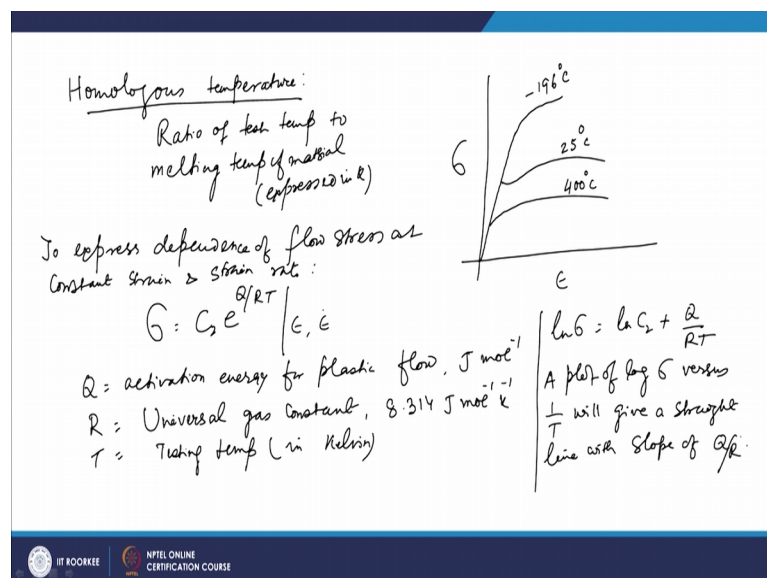 Homologous temperature:
Ratio of test temp to
melting temp of material
(expressed in K)
-196°C
25°C
400°C
σ
ε
To express dependence of flow stress at
Constant strain & strain rate:
σ = C₂ e^{Q/RT} | ε, ε̇
Q = activation energy for plastic flow, J mol⁻¹
R = Universal gas constant, 8.314 J mol⁻¹ K⁻¹
T = Testing temp (in Kelvin)
ln σ = ln C₂ + Q/RT
A plot of log σ versus
1/T will give a straight
line with slope of Q/R.
IIT ROORKEE
NPTEL ONLINE
CERTIFICATION COURSE